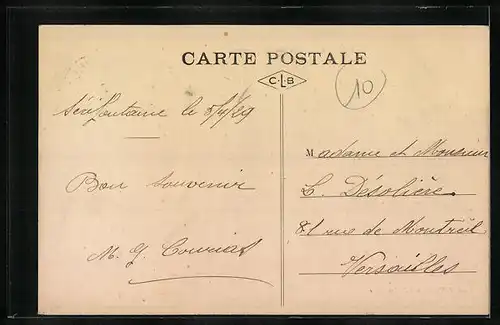 CARTE POSTALE
C.L.B
10
Sérifontaine le 8/4/29
Bon souvenir
M. G.
Madame et Monsieur
L. Désolière
81 rue de Montreuil
Versailles